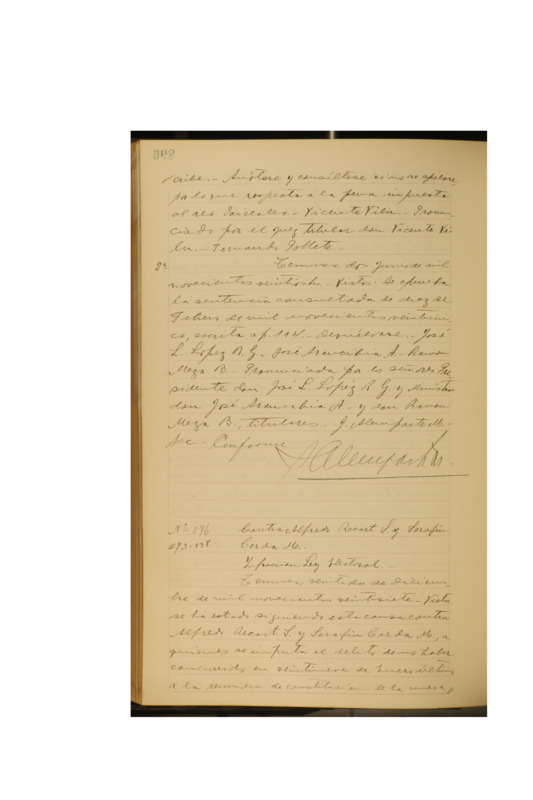 cribe.- Anótese y consúltese si no se apelare,
por lo que respecta a la pena impuesta
al reo Vicente Vila.- Pronun-
ciado por el juez titular don Vicente Vi-
la.- Fernando Poblete.-
2a Temuco, dos Junio de mil
novecientos veintiocho.- Vistos: Se aprueba
la sentencia consultada de diez de
Febrero de mil novecientos veinticin-
co, escrita a f. 114.- Devuélvase.- José
L. López R. G.- José Arancibia A.- Ramon
Meza B.- Pronunciada por los señores Pre-
sidente don José L. López R. G. y Ministros
don José Arancibia A.- y don Ramon
Meza B., titulares.- J. Alemparte M.-
Sec.- Conforme
Alemparte M.
No 176 Contra Alfredo S. y Serafin
Cerda M.-
Infraccion Ley Electoral.-
Temuco, veintidos de Diciem-
bre de mil novecientos veintisiete.- Vistos:
se ha estado siguiendo esta causa contra
Alfredo S. y Serafin Cerda M., a
quienes se imputa el delito de no haber
concurrido en veintinueve de Enero último
a la reunion de constitucion de la mesa